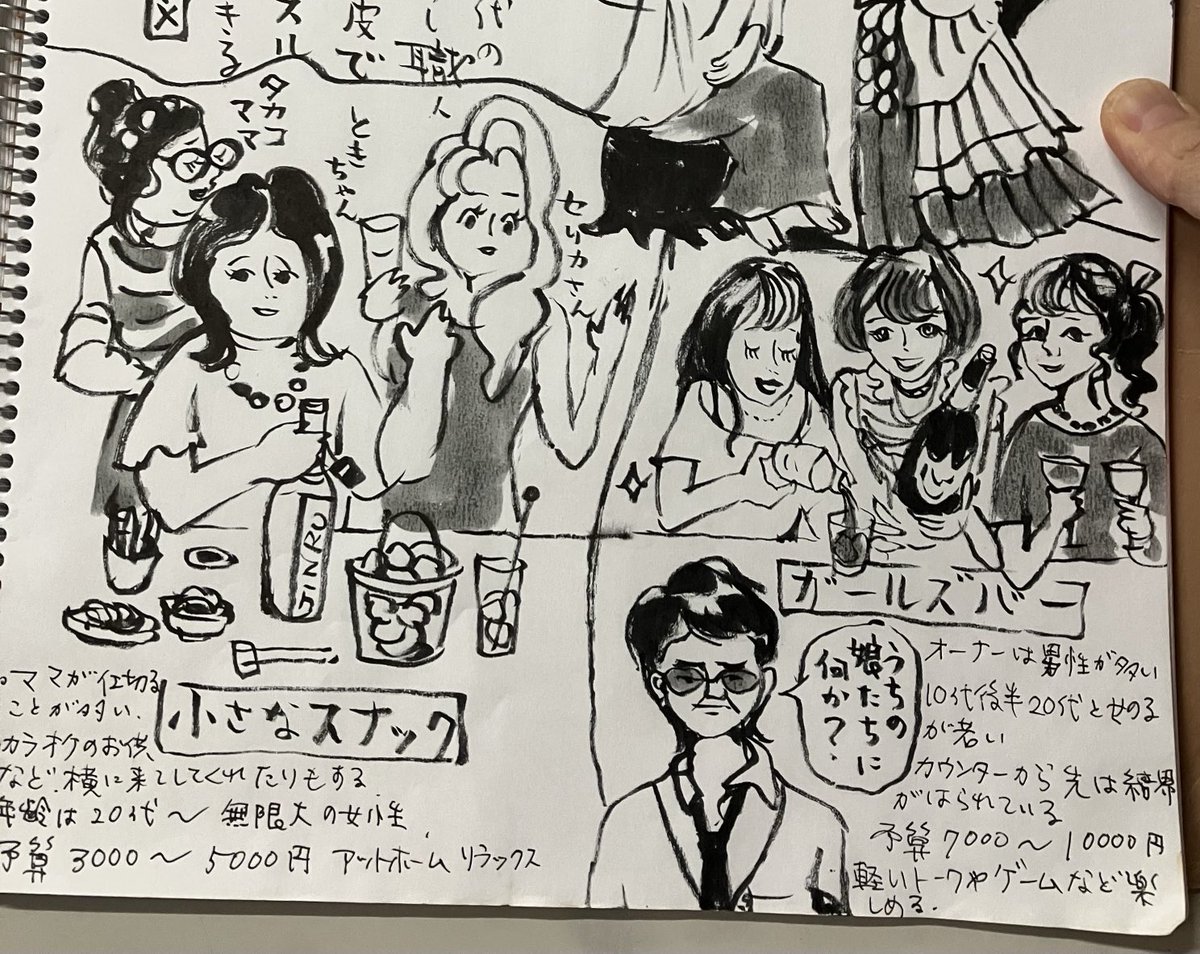 代の
し職人
皮で
スル
きる
タカコ
ママ
ときちゃん
セリカさん
JINRO
ママが仕切る
ことが多い.
小さなスナック
カラオケのお供
など、横に来てしてくれたりもする.
年齢は20代〜無限大の女性.
予算 3000〜5000円 アットホーム リラックス
ガールズバー
うちの
娘たちに
何か?
オーナーは男性が多い
10代後半20代と女の子
が若い
カウンターから先は結界
がはられている
予算7000〜10000円
軽いトークやゲームなど楽
しめる.